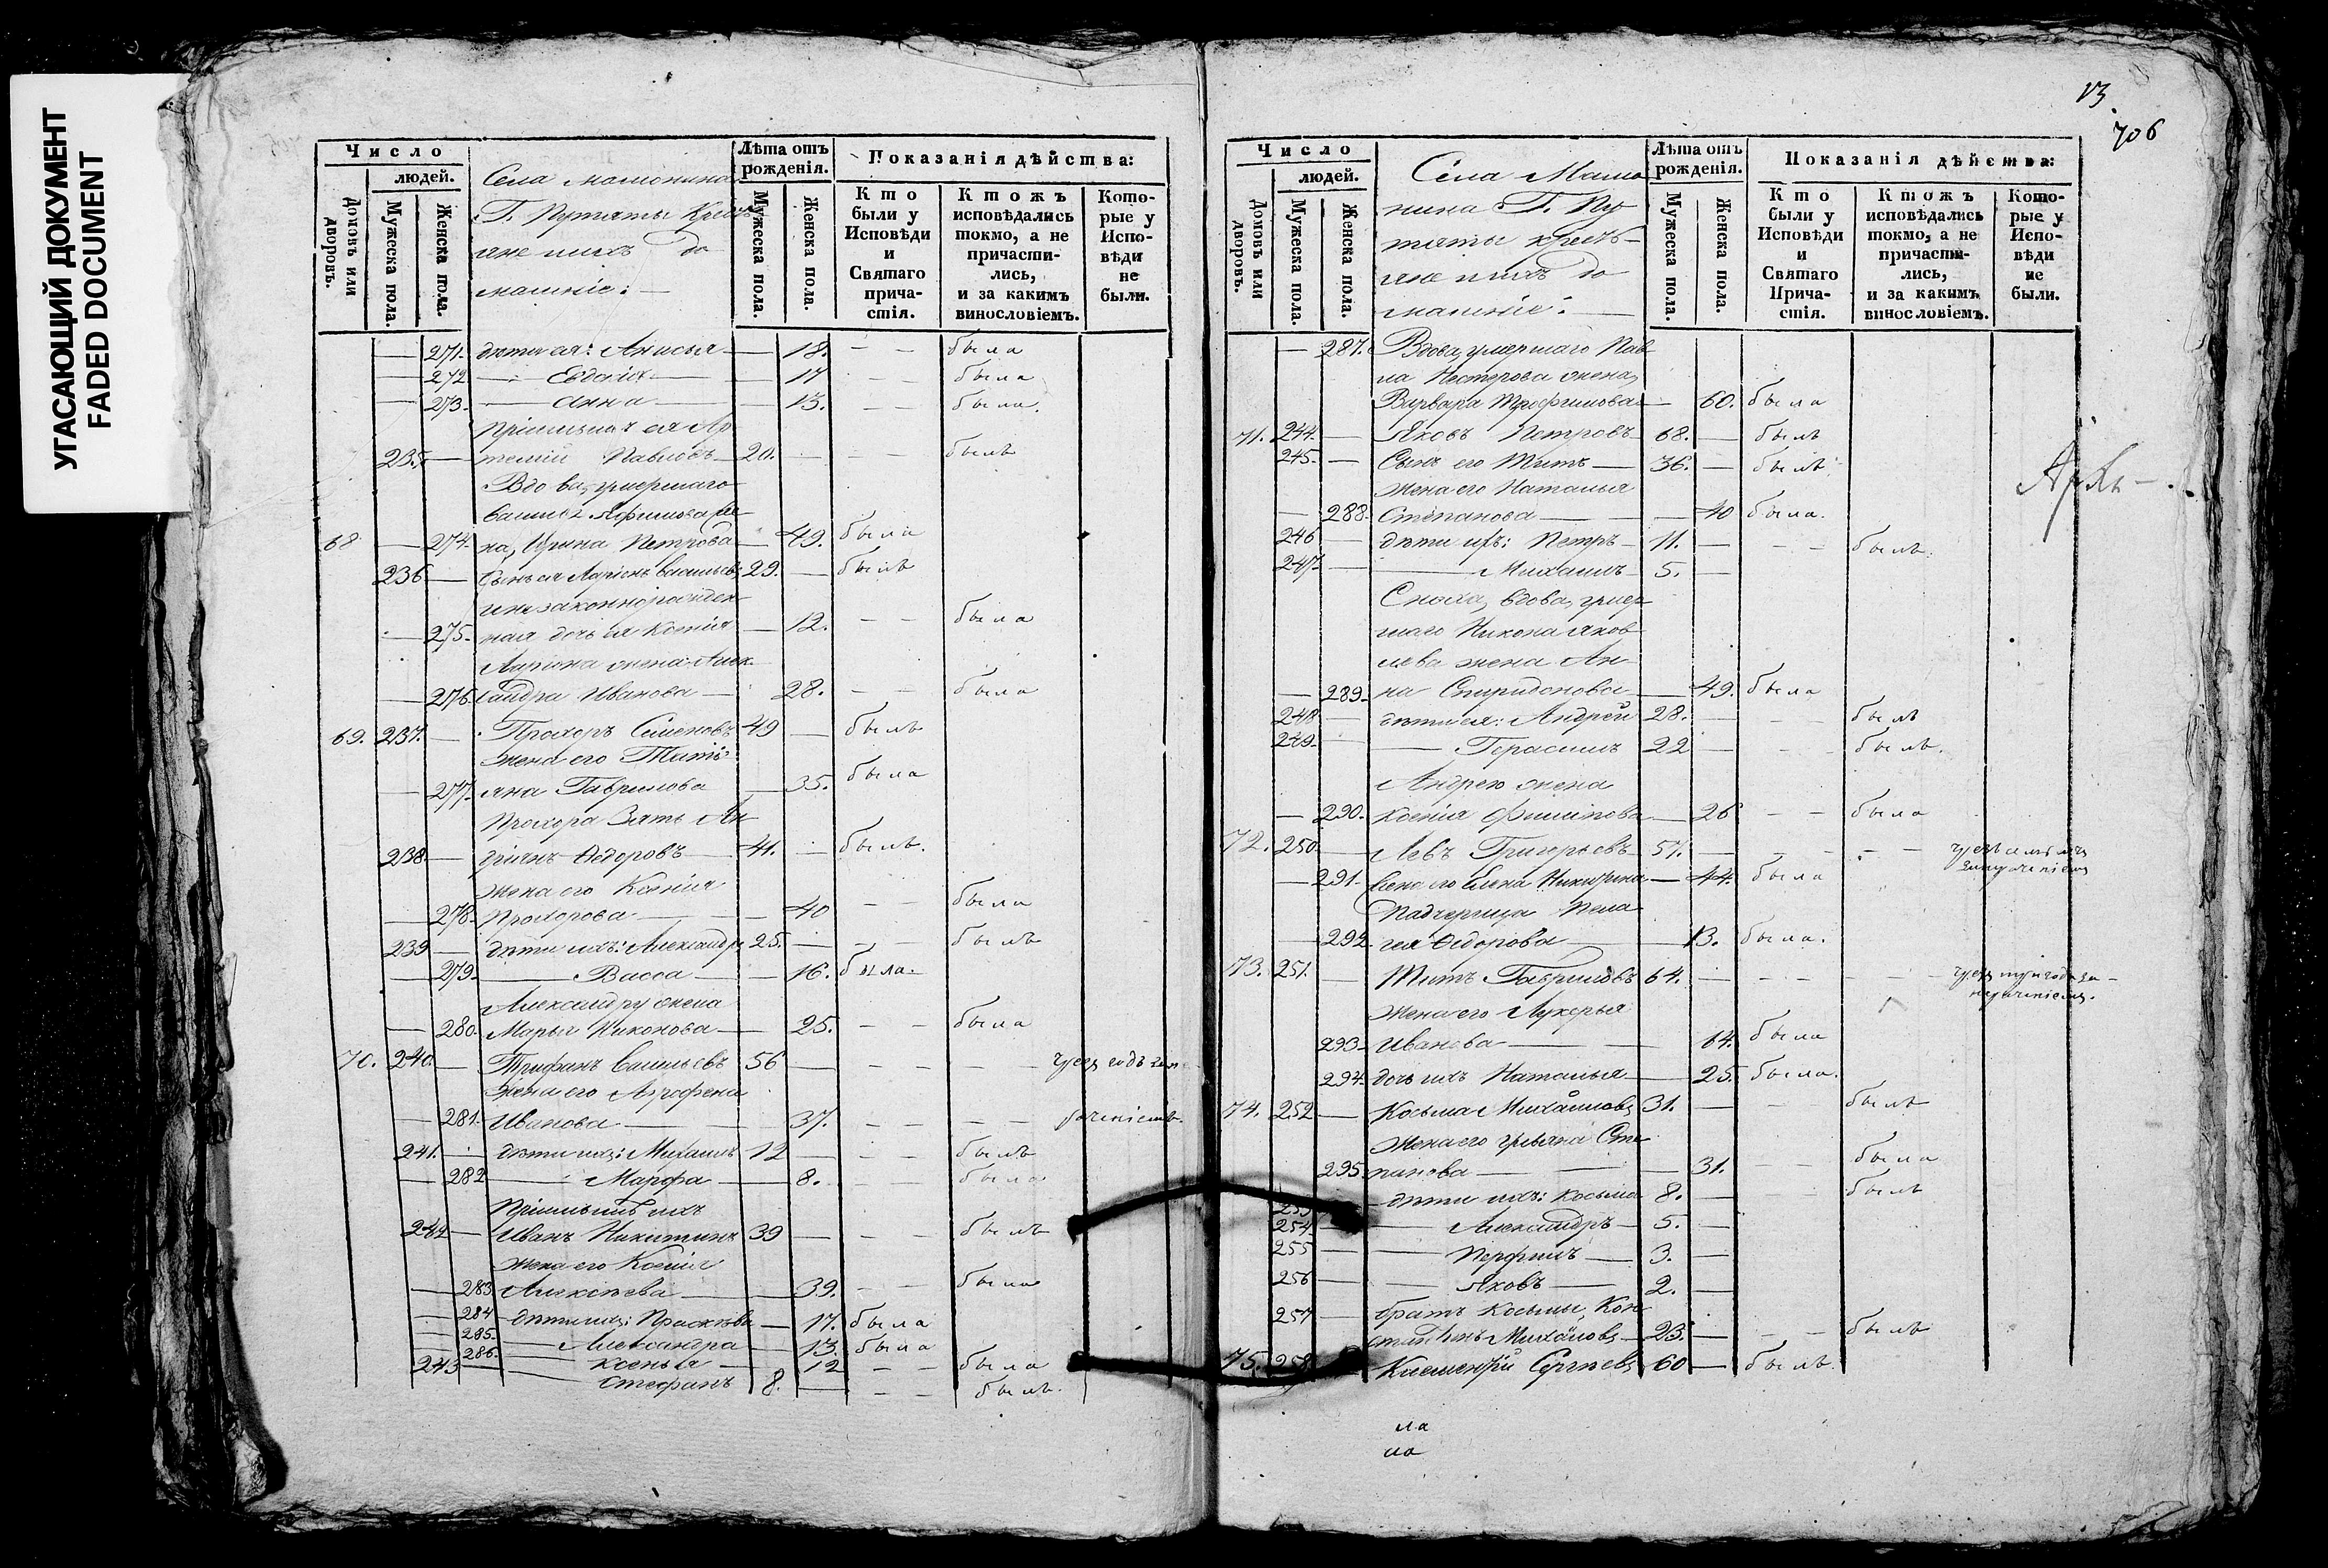 УГАСАЮЩИЙ ДОКУМЕНТ
FADED DOCUMENT
Число
людей.
Домовъ или дворовъ.
Мужеска пола.
Женска пола.
Села
Г. Путяты Кресть
яне ихъ до
машніе:
Лѣта отъ рожденія.
Мужеска пола.
Женска пола.
Показанія дѣйства:
Кто были у Исповѣди и Святаго причастія.
Ктожъ исповѣдались токмо, а не причастились, и за какимъ винословіемъ.
Которые у Исповѣди не были.
271. дѣти ея: Анисья 18. была
272 Евдокія 17 была
273. Анна 13. была.
Пріемышъ ея Ар
235. темій Павловъ 20. былъ
Вдова, умершаго
68 274. на, Ирина Петрова 49. была
236 Сынъ ея 29. былъ
незаконнорожден
275. ная дочь ея Ксенія 12. была
жена Алек
276. сандра Иванова 28. была
69. 237. Прохоръ Семеновъ 49 былъ
жена его Тать
277. яна Гаврилова 35. была
Прохора Зять Ан
238. дріянъ Ѳедоровъ 41. былъ.
жена его Ксенія
278. Прохорова 40 была
239 дѣти ихъ: Александръ 25. былъ
279. Васса 16. была.
Александру жена
280. Марья Никонова 25. была
70. 240. Трифанъ Васильевъ 56
Жена его Агрофена
281. Иванова 37.
241. дѣти ихъ: Михаилъ 12 былъ
282 Марфа 8. была
Пріемышъ ихъ
242 Иванъ Никитинъ 39 былъ
жена его Ксенія
283. Алексѣева 39. была
284 дѣти ихъ: Прасковья 17. была
285. Александра 13. была
286. Ксенья 12 была
243 Стефанъ 8. былъ.
13
706
Число
людей.
Домовъ или дворовъ.
Мужеска пола.
Женска пола.
Села Мамо
нина Г. Пу
тяты кресть
яне ихъ до
машніе:
Лѣта отъ рожденія.
Мужеска пола.
Женска пола.
Показанія дѣйства:
Кто были у Исповѣди и Святаго Причастія.
Ктожъ исповѣдались токмо, а не причастились, и за какимъ винословіемъ.
Которые у Исповѣди не были.
287. Вдова, умершаго Пав
ла Нестерова жена,
Варвара Трофимова 60. была
71. 244. Яковъ Петровъ 68. былъ
245. Сынъ его Титъ 36. былъ
жена его Наталья
288. Степанова 40 была.
246 дѣти ихъ: Петръ 11. былъ.
247 Михаилъ 5.
Сноха, вдова, умер
шаго Никона Яков
лева жена Ан
289. на Спиридонова 49. была
248 дѣти ея: Андрей 28. былъ
249. Герасимъ 22 былъ.
Андрею жена
290. Ксенія Филипова 26 была
72. 250 Левъ Григорьевъ 57.
291. Жена его Елена 44. была
Падчерица Пела
292. гея Ѳедорова 13. была.
73. 251. Титъ Гавриловъ 64.
жена его Лукерья
293. Иванова 64. была
294. дочь ихъ Наталья 25. была.
74. 252 Косьма Михайловъ 31. былъ
жена его Ульяна Сте
295. панова 31. была
253 дѣти ихъ: Косьма 8. былъ
254 Александръ 5.
255 Перфилъ 3.
256 Яковъ 2.
257 братъ Косьмы, Кон
стантинъ Михайловъ 23. былъ
75. 258 Климентій Сергѣевъ 60 былъ.
ла
ла